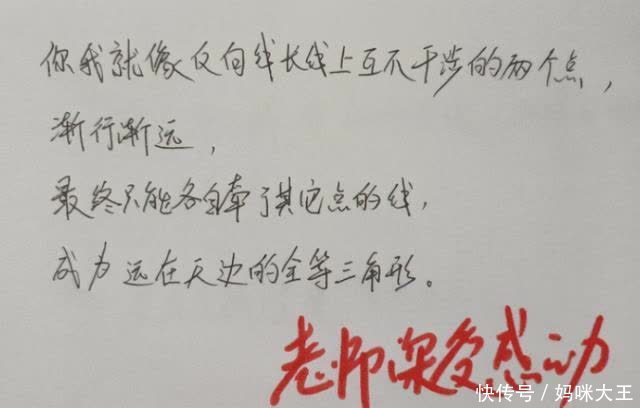 你我就像反向线长线上互不干涉的两个点，
渐行渐远，
最终只能各自牵了其它点的线，
成为远在天边的全等三角形。
老师深受感动
快传号／妈咪大王